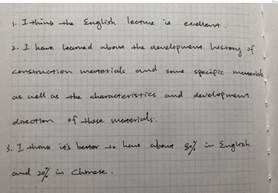 1. I think the English lecture is excellent.
2. I have learned about the development history of
construction materials and some specific materials
as well as the characteristics and development
direction of these materials.
3. I think it's better to have about 80% in English
and 20% in Chinese.